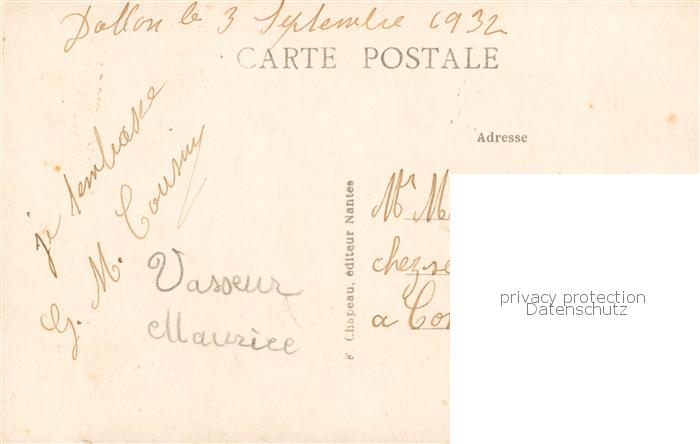 Dallon le 3 Septembre 1932
CARTE POSTALE
Adresse
je tembrasse
G. M. Cousin
Vasseur
Maurice
F. Chapeau, éditeur Nantes
Mr M
chez se
a Co
privacy protection
Datenschutz